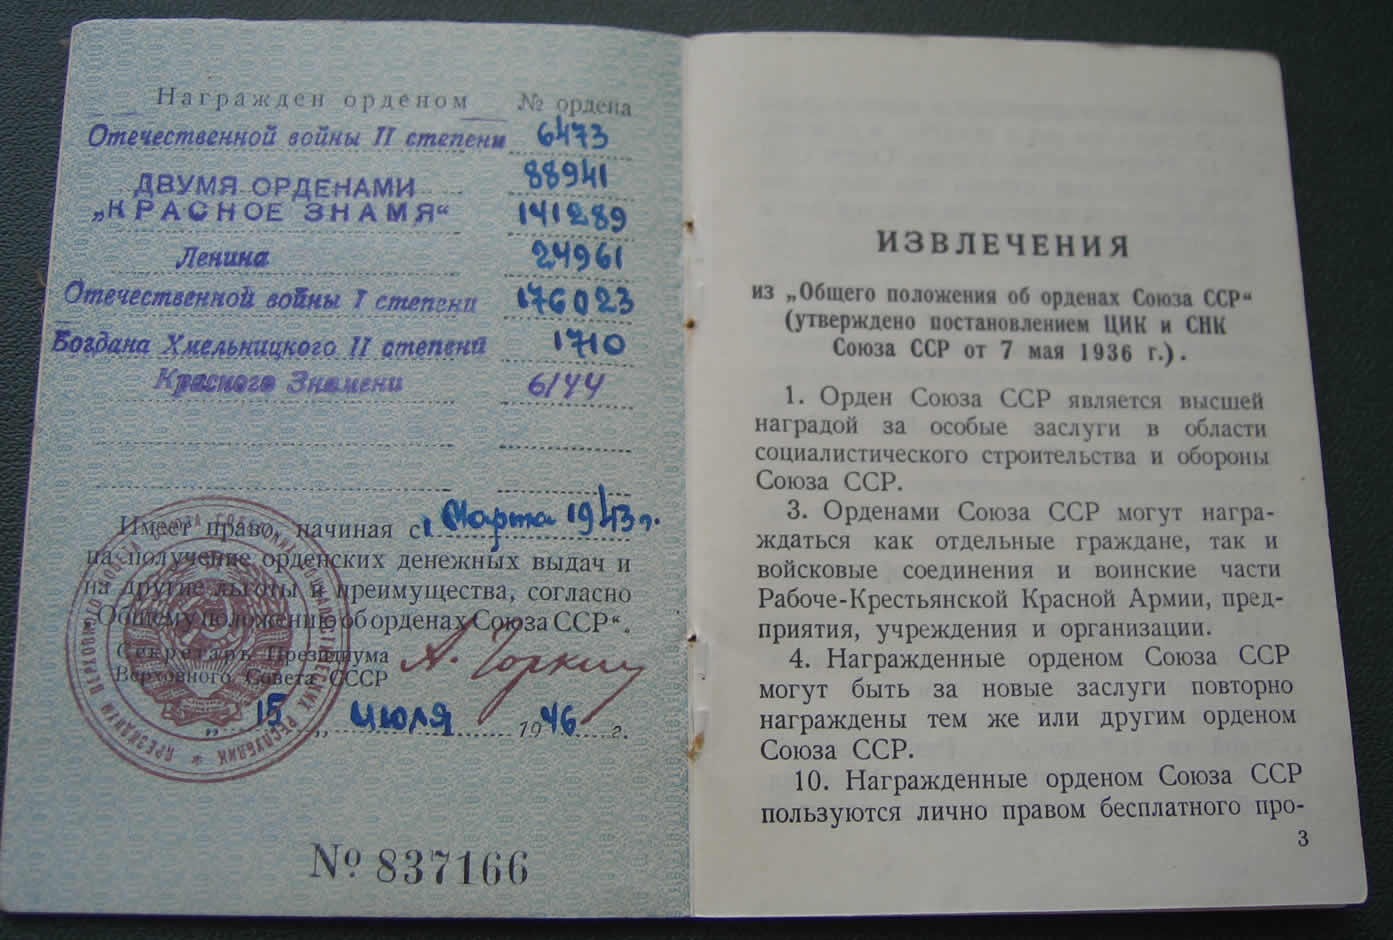 Награжден орденом № ордена
Отечественной войны II степени 6473
ДВУМЯ ОРДЕНАМИ 88941
„КРАСНОЕ ЗНАМЯ“ 141289
Ленина 24961
Отечественной войны I степени 176023
Богдана Хмельницкого II степени 1710
Красного Знамени 6144
Имеет право, начиная с 1 Марта 1943 г.
на получение орденских денежных выдач и
на другие льготы и преимущества, согласно
„Общему положению об орденах Союза ССР“.
Секретарь Президиума
Верховного Совета СССР А. Горкин
„15„ июля 1946 г.
№ 837166
ИЗВЛЕЧЕНИЯ
из „Общего положения об орденах Союза ССР“
(утверждено постановлением ЦИК и СНК
Союза ССР от 7 мая 1936 г.).
1. Орден Союза ССР является высшей
наградой за особые заслуги в области
социалистического строительства и обороны
Союза ССР.
3. Орденами Союза ССР могут награ-
ждаться как отдельные граждане, так и
войсковые соединения и воинские части
Рабоче-Крестьянской Красной Армии, пред-
приятия, учреждения и организации.
4. Награжденные орденом Союза ССР
могут быть за новые заслуги повторно
награждены тем же или другим орденом
Союза ССР.
10. Награжденные орденом Союза ССР
пользуются лично правом бесплатного про-
3